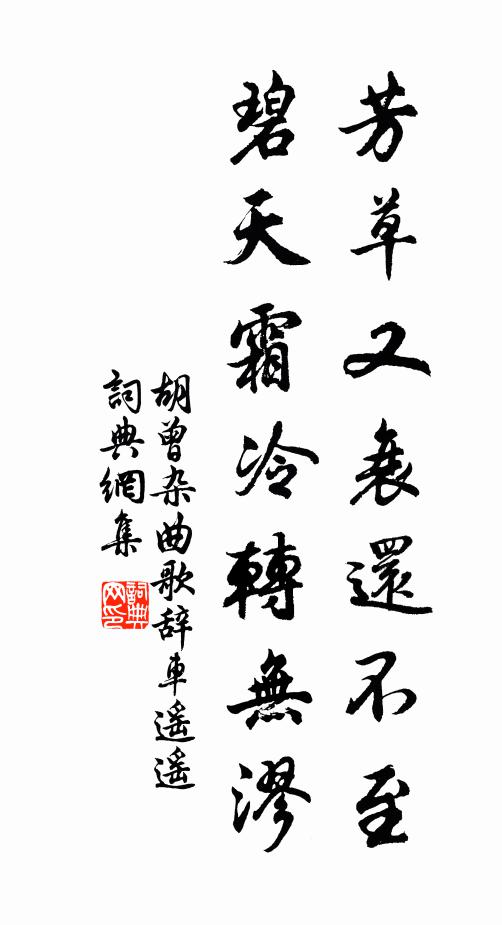 芳草又衰還不至
碧天霜冷轉無漻
胡曾杂曲歌辞車遥遥
詞典網集
詞典网印